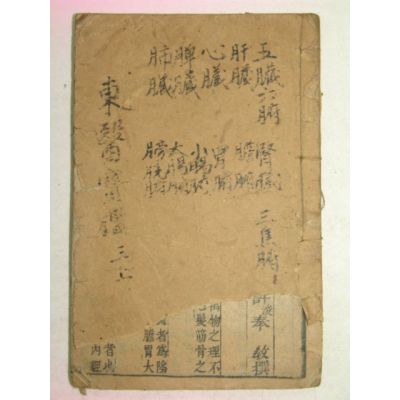 五臟六腑
肝臟
心臟
脾臟
肺臟
腎臟
膽腑
胃腑
小腸腑
大腸腑
膀胱腑
三焦腑
東醫寶鑑
奉 教撰
物之理不
髮筋骨之
者爲陽
膽胃大
昔
內經